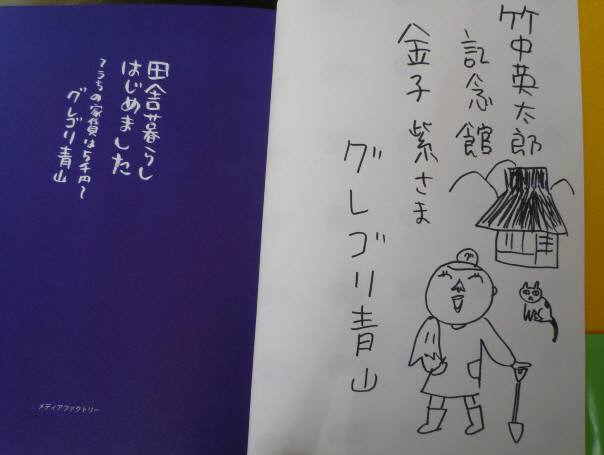 竹中英太郎
記念館
金子 紫さま
グレゴリ青山
グ
田舎暮らし
はじめました
〜うちの家賃は5千円〜
グレゴリ青山
メディアファクトリー